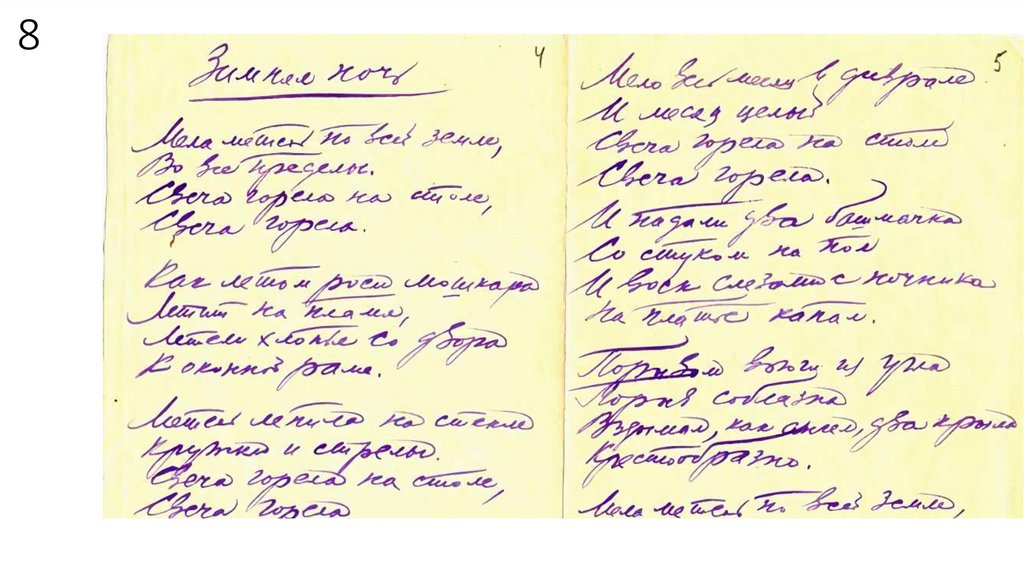 8
4
Зимняя ночь
Мела метель по всей земле,
Во все пределы.
Свеча горела на столе,
Свеча горела.
Как летом роем мошкара
Летит на пламя,
Летели хлопья со двора
К оконной раме.
Метель лепила на стекле
Кружки и стрелы.
Свеча горела на столе,
Свеча горела
5
Мело весь месяц в феврале
И месяц целый
Свеча горела на столе
Свеча горела.
И падали два башмачка
Со стуком на пол
И воск слезами с ночника
На платье капал.
Порывом вьюги из угла
Порыв соблазна
Вздымал, как ангел, два крыла
Крестообразно.
Мела метель по всей земле,